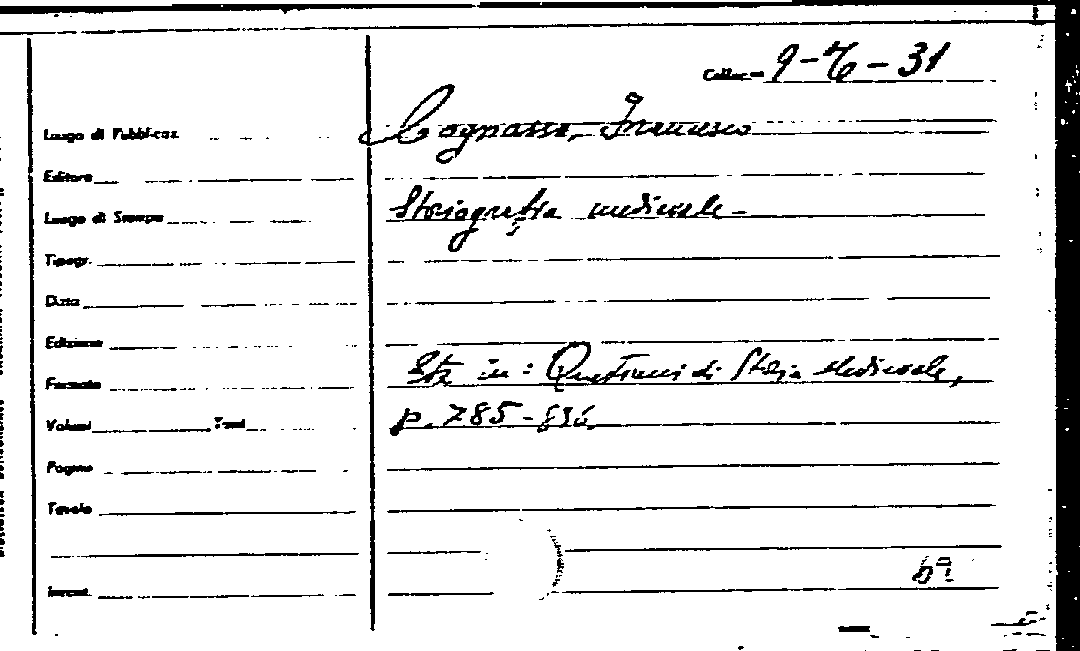 Colloc. 9-6-31
Luogo di Pubblicaz.
Cognasso, Francesco
Editore
Luogo di Stampa
Storiografia medievale -
Tipogr.
Data
Edizione
Formato
Sta in: Questioni di Storia Medievale,
Volumi Tomi
p. 785-836
Pagine
Tavole
Invent.